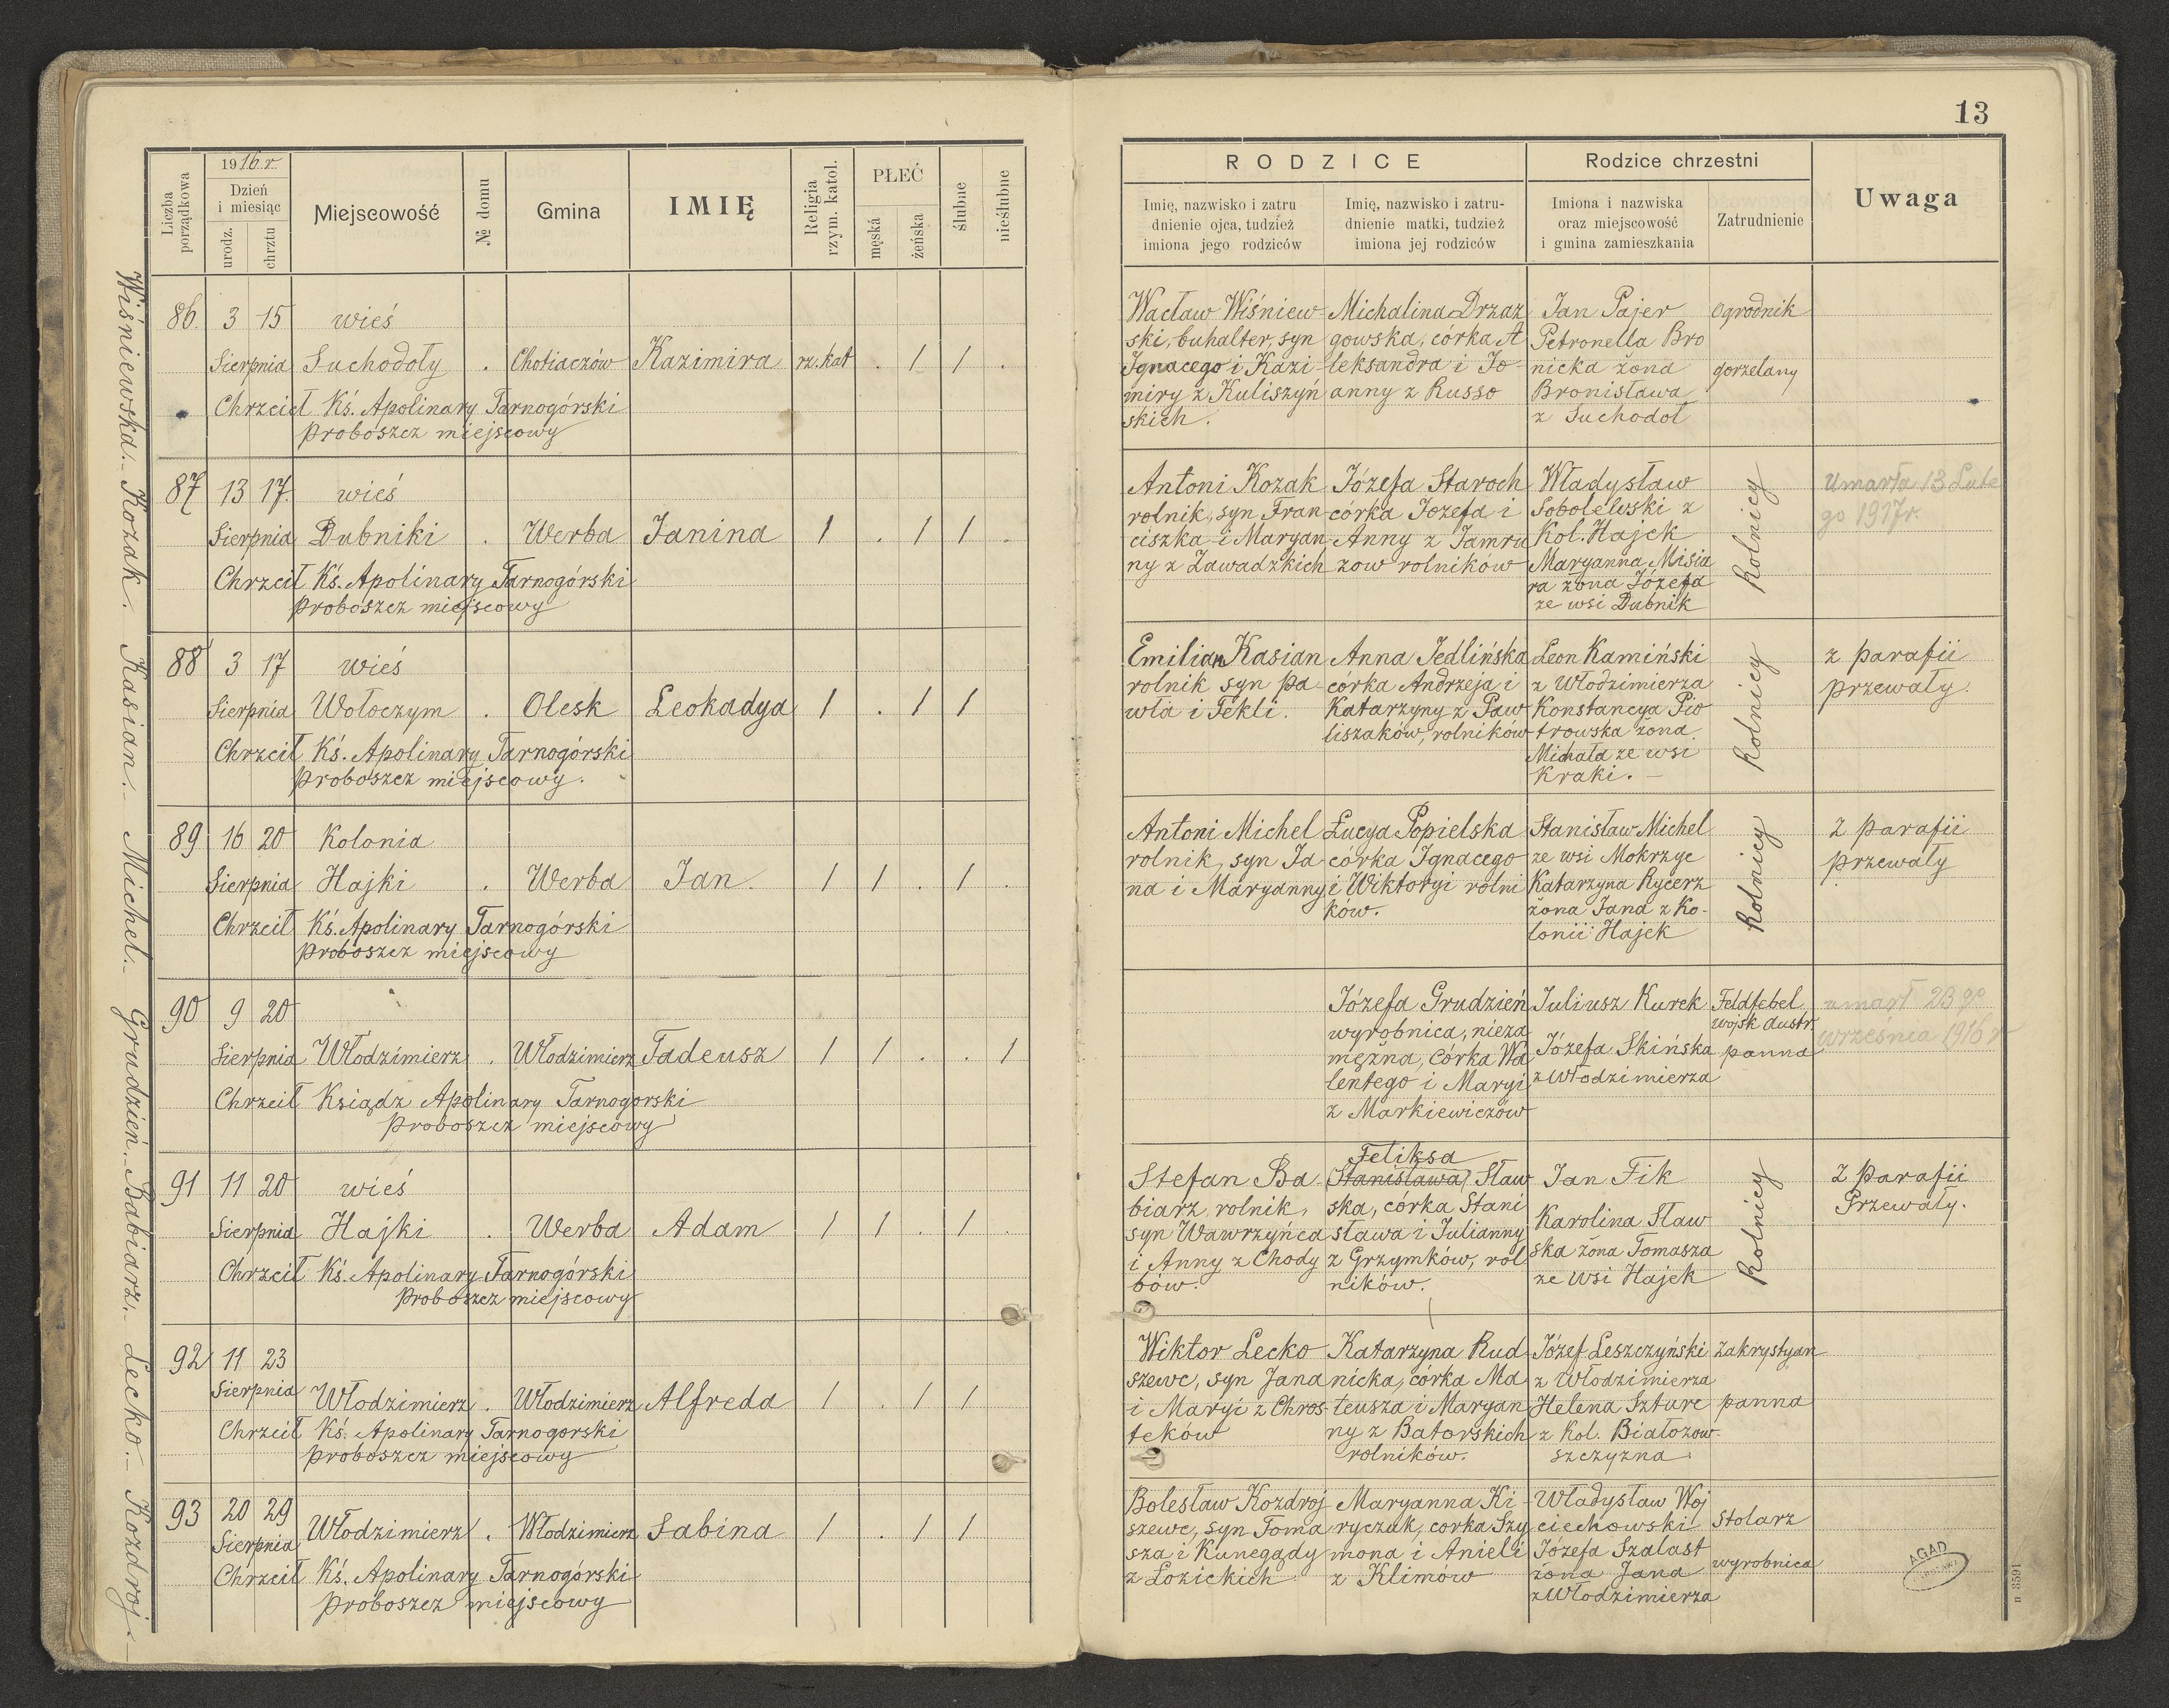 13
1916 r.
Liczba porządkowa
Dzień i miesiąc
urodz.
chrztu
Miejscowość
№ domu
Gmina
IMIĘ
Religia rzym. katol.
PŁEĆ
męska
żeńska
ślubne
nieślubne
RODZICE
Imię, nazwisko i zatru
dnienie ojca, tudzież
imiona jego rodziców
Imię, nazwisko i zatru-
dnienie matki, tudzież
imiona jej rodziców
Rodzice chrzestni
Imiona i nazwiska
oraz miejscowość
i gmina zamieszkania
Zatrudnienie
Uwaga
Wiśniewska.- Kozak. Kasian.- Michel.- Grudzień.- Babiarz.- Lecko.- Kozdroj.-
86. 3 15 wieś
Sierpnia Suchodoły . Chotiaczów Kazimira rz.kat . 1 1 .
Chrzcił Kś. Apolinary Tarnogórski
proboszcz miejscowy
Wacław Wiśniew-
ski, buhalter, syn
Ignacego i Kazi-
miry z Kuliszyń
skich.
Michalina Drzaz
gowska, córka A
leksandra i Jo-
anny z Russo
Jan Pajer
Petronella Bro
nicka żona
Bronisława
z Suchodoł
Ogrodnik
gorzelany
87 13 17. wieś
Sierpnia Dubniki . Werba Janina 1 . 1 1 .
Chrzcił Kś. Apolinary Tarnogórski
proboszcz miejscowy
Antoni Kozak
rolnik, syn Fran
ciszka i Maryan-
ny z Zawadzkich
Józefa Staroch
córka Józefa i
Anny z Jamru
zow rolników
Władysław
Sobolewski z
Kol. Hajek
Maryanna Misia
ra żona Józefa
ze wsi Dubnik
Rolnicy
Umarła 13 Lute
go 1917r
88 3 17 wieś
Sierpnia Wołoczym . Olesk Leokadya 1 . 1 1
Chrzcił Kś. Apolinary Tarnogórski
proboszcz miejscowy.
Emilian Kasian
rolnik syn Pa-
wła i Tekli.
Anna Jedlińska
córka Andrzeja i
Katarzyny z Paw
liszaków, rolników
Leon Kamiński
z Włodzimierza
Konstancya Pio
trowska żona
Michała ze wsi
Kraki. -
Rolnicy
z parafii
przewały.
89 16 20 Kolonia
Sierpnia Hajki . Werba Jan. 1 1 . 1 .
Chrzcił Kś. Apolinary Tarnogórski
proboszcz miejscowy
Antoni Michel
rolnik, syn Ja
na i Maryanny
Łucya Popielska
córka Ignacego
i Wiktoryi rolni
ków.
Stanisław Michel
ze wsi Mokrzyc
Katarzyna Rycerz
żona Jana z Ko-
lonii Hajek
Rolnicy
z parafii
przewały
90 9 20
Sierpnia Włodzimierz . Włodzimierz Tadeusz 1 1 . . 1
Chrzcił Ksiądz Apolinary Tarnogorski
proboszcz miejscowy
Józefa Grudzień
wyrobnica, nieza
mężna, córka Wa
lentego i Maryi
z Markiewiczów
Juliusz Kurek
Józefa Skińska
z Włodzimierza
Feldfebel
wojsk Austr.
panna
umarł 23 go
września 1916 r
91 11 20 wieś
Sierpnia Hajki . Werba Adam 1 1 . 1 .
Chrzcił Kś. Apolinary Tarnogórski
proboszcz miejscowy
Stefan Ba-
biarz, rolnik,
syn Wawrzyńca
i Anny z Chody
bów.
Feliksa
(Stanisława) Sław
ska, córka Stani
sława i Julianny
z Grzymków, rol
ników.
Jan Fik
Karolina Sław
ska żona Tomasza
ze wsi Hajek
Rolnicy
z parafii
Przewały.
92 11 23
Sierpnia Włodzimierz . Włodzimierz Alfreda 1 . 1 1
Chrzcił Kś. Apolinary Tarnogorski
proboszcz miejscowy
Wiktor Lecko
szewc, syn Jana
i Maryi z Chros-
teków
Katarzyna Rud
nicka, córka Ma
teusza i Maryan
ny z Batorskich
rolników.
Józef Leszczyński
z Włodzimierza
Helena Szturc
z Kol. Białozow-
szczyzna
zakrystyan
panna
93 20 29
Sierpnia Włodzimierz . Włodzimierz Sabina 1 . 1 1
Chrzcił Kś. Apolinary Tarnogórski
proboszcz miejscowy
Bolesław Kozdroj
szewc, syn Toma
sza i Kunegądy
z Łozickich
Maryanna Ki-
ryczuk, corka Szy
mona i Anieli
z Klimów
Władysław Woj
ciechowski
Józefa Szalast
żona Jana
z Włodzimierza
Stolarz
wyrobnica
AGAD
n 3591